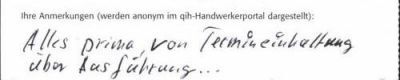 Ihre Anmerkungen (werden anonym im qih-Handwerkerportal dargestellt):
Alles prima, von Termineinhaltung
über Ausführung...